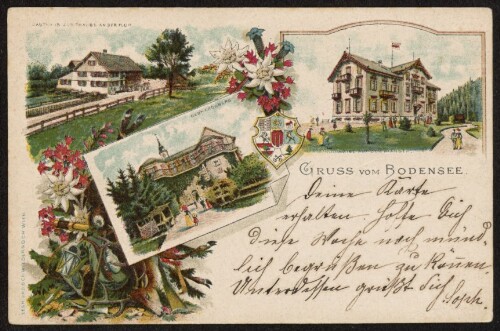 GRUSS VOM BODENSEE.
Deine Karte
erhalten. Hoffe Dich
diese Woche noch münd-
lich begrüßen zu können.
Unterdessen grüßt Dich
Soph